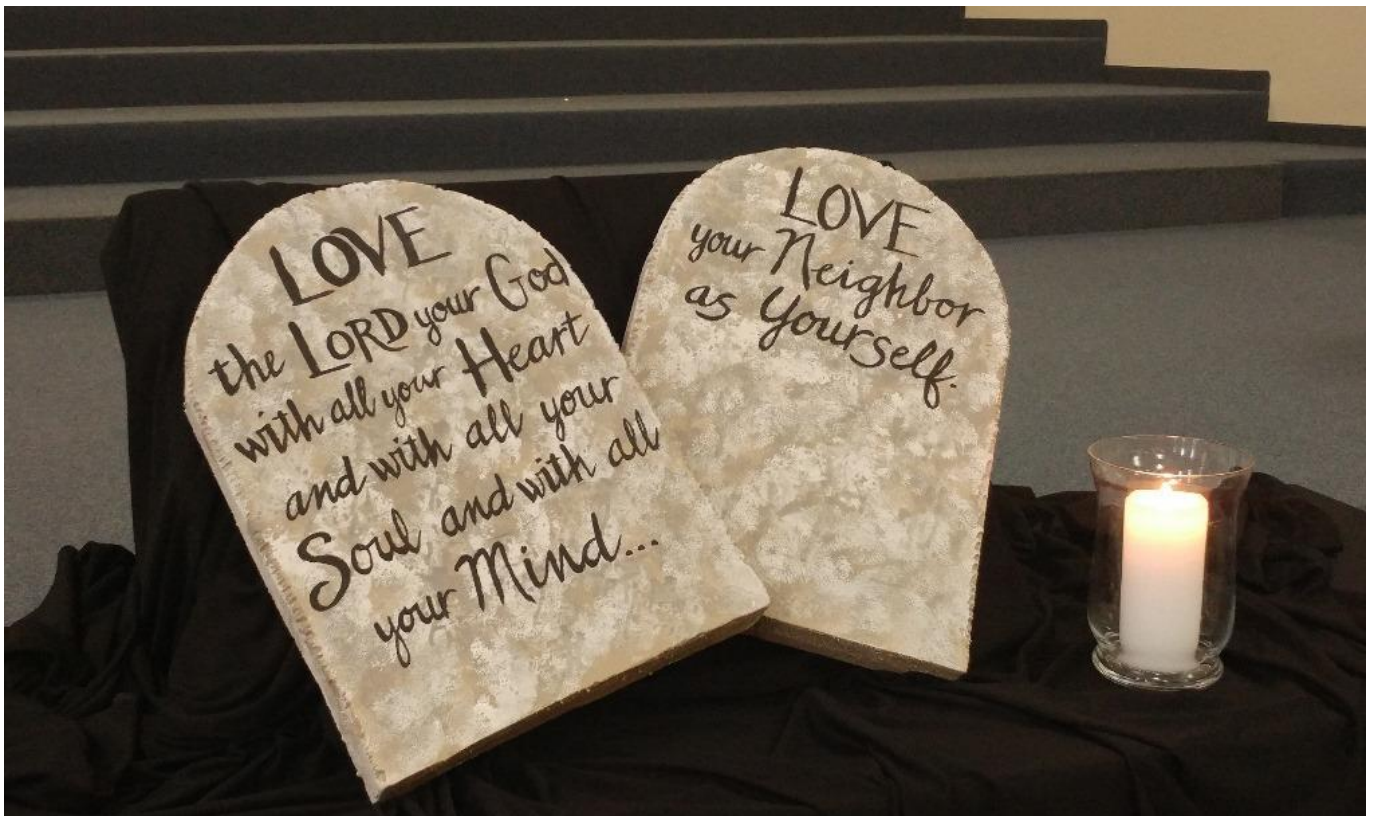 LOVE
the LORD your God
with all your Heart
and with all your
Soul and with all
your Mind...
LOVE
your Neighbor
as Yourself.